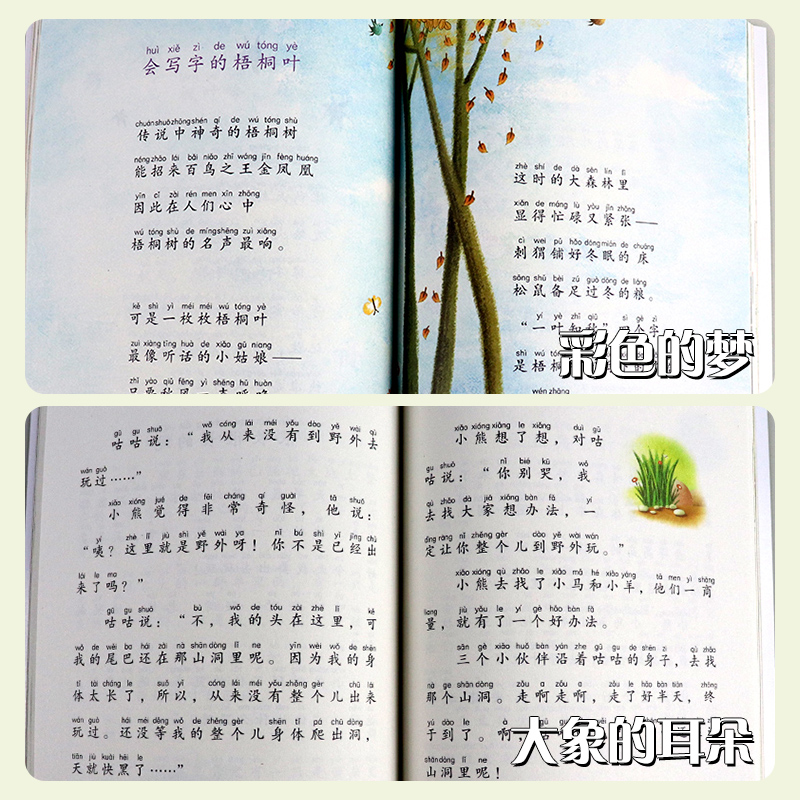 huì xiě zì de wú tóng yè
会写字的梧桐叶
chuánshuōzhōngshén qí de wú tóng shù
传说中神奇的梧桐树
néngzhāo lái bǎi niǎo zhī wáng jīn fèng huáng
能招来百鸟之王金凤凰
yīn cǐ zài rén men xīn zhōng
因此在人们心中
wú tóng shù de míngshēng zuì xiǎng
梧桐树的名声最响。
kě shì yì méi méi wú tóng yè
可是一枚枚梧桐叶
zuì xiàng tīng huà de xiǎo gū niang
最像听话的小姑娘——
zhǐ yào qiū fēng yì shēng hū huàn
只要秋风一声呼唤
zhè shí de dà sēn lín lǐ
这时的大森林里
xiǎn de máng lù yòu jǐn zhāng
显得忙碌又紧张——
cì wei pū hǎo dōng mián de chuáng
刺猬铺好冬眠的床
sōng shǔ bèi zú guò dōng de liáng
松鼠备足过冬的粮。
yí yè zhī qiū sì gè zì
“一叶知秋” 个字
shì wú tóng
是梧桐
wén zhāng
彩色的梦
gū gu shuō wǒ cóng lái méi yǒu dào yě wài qù
咕咕说：“我从来没有到野外去
wán guò
玩过……”
xiǎo xióng jué de fēi cháng qí guài tā shuō
小熊觉得非常奇怪，他说：
yí zhè lǐ jiù shì yě wài ya nǐ bú shì yǐ jīng chū
“咦？这里就是野外呀！你不是已经出
lái le ma
来了吗？”
gū gu shuō bù wǒ de tóu zài zhè lǐ kě
咕咕说：“不，我的头在这里，可
wǒ de wěi ba hái zài nà shāndòng lǐ ne yīn wèi wǒ de shēn
我的尾巴还在那山洞里呢。因为我的身
tǐ tài cháng le suǒ yǐ cóng lái méi yǒuzhěng gèr chū lái
体太长了，所以，从来没有整个儿出来
wán guò hái méi děng wǒ de zhěng gèr shēn tǐ pá chū dòng
玩过。还没等我的整个儿身体爬出洞，
tiān jiù kuài hēi le
天就快黑了……”
xiǎo xióng xiǎng le xiǎng duì gū
小熊想了想，对咕
gu shuō nǐ bié kū wǒ
咕说：“你别哭，我
qù zhǎo dà jiā xiǎng bàn fǎ yí
去找大家想办法，一
dìng ràng nǐ zhěng gèr dào yě wài wán
定让你整个儿到野外玩。”
xiǎo xióng qù zhǎo le xiǎo mǎ hé xiǎo yáng tā men yì shāng
小熊去找了小马和小羊，他们一商
liang jiù yǒu le yí gè hǎo bàn fǎ
量，就有了一个好办法。
sān gè xiǎo huǒ bàn yán zhe gū gu de shēn zi qù zhǎo
三个小伙伴沿着咕咕的身子，去找
nà ge shāndòng zǒu a zǒu a zǒu le hǎo bàn tiān zhōng
那个山洞。走啊走啊，走了好半天，终
yú dào le
于到了。啊
shāndòng lǐ ne
山洞里呢！
大象的耳朵